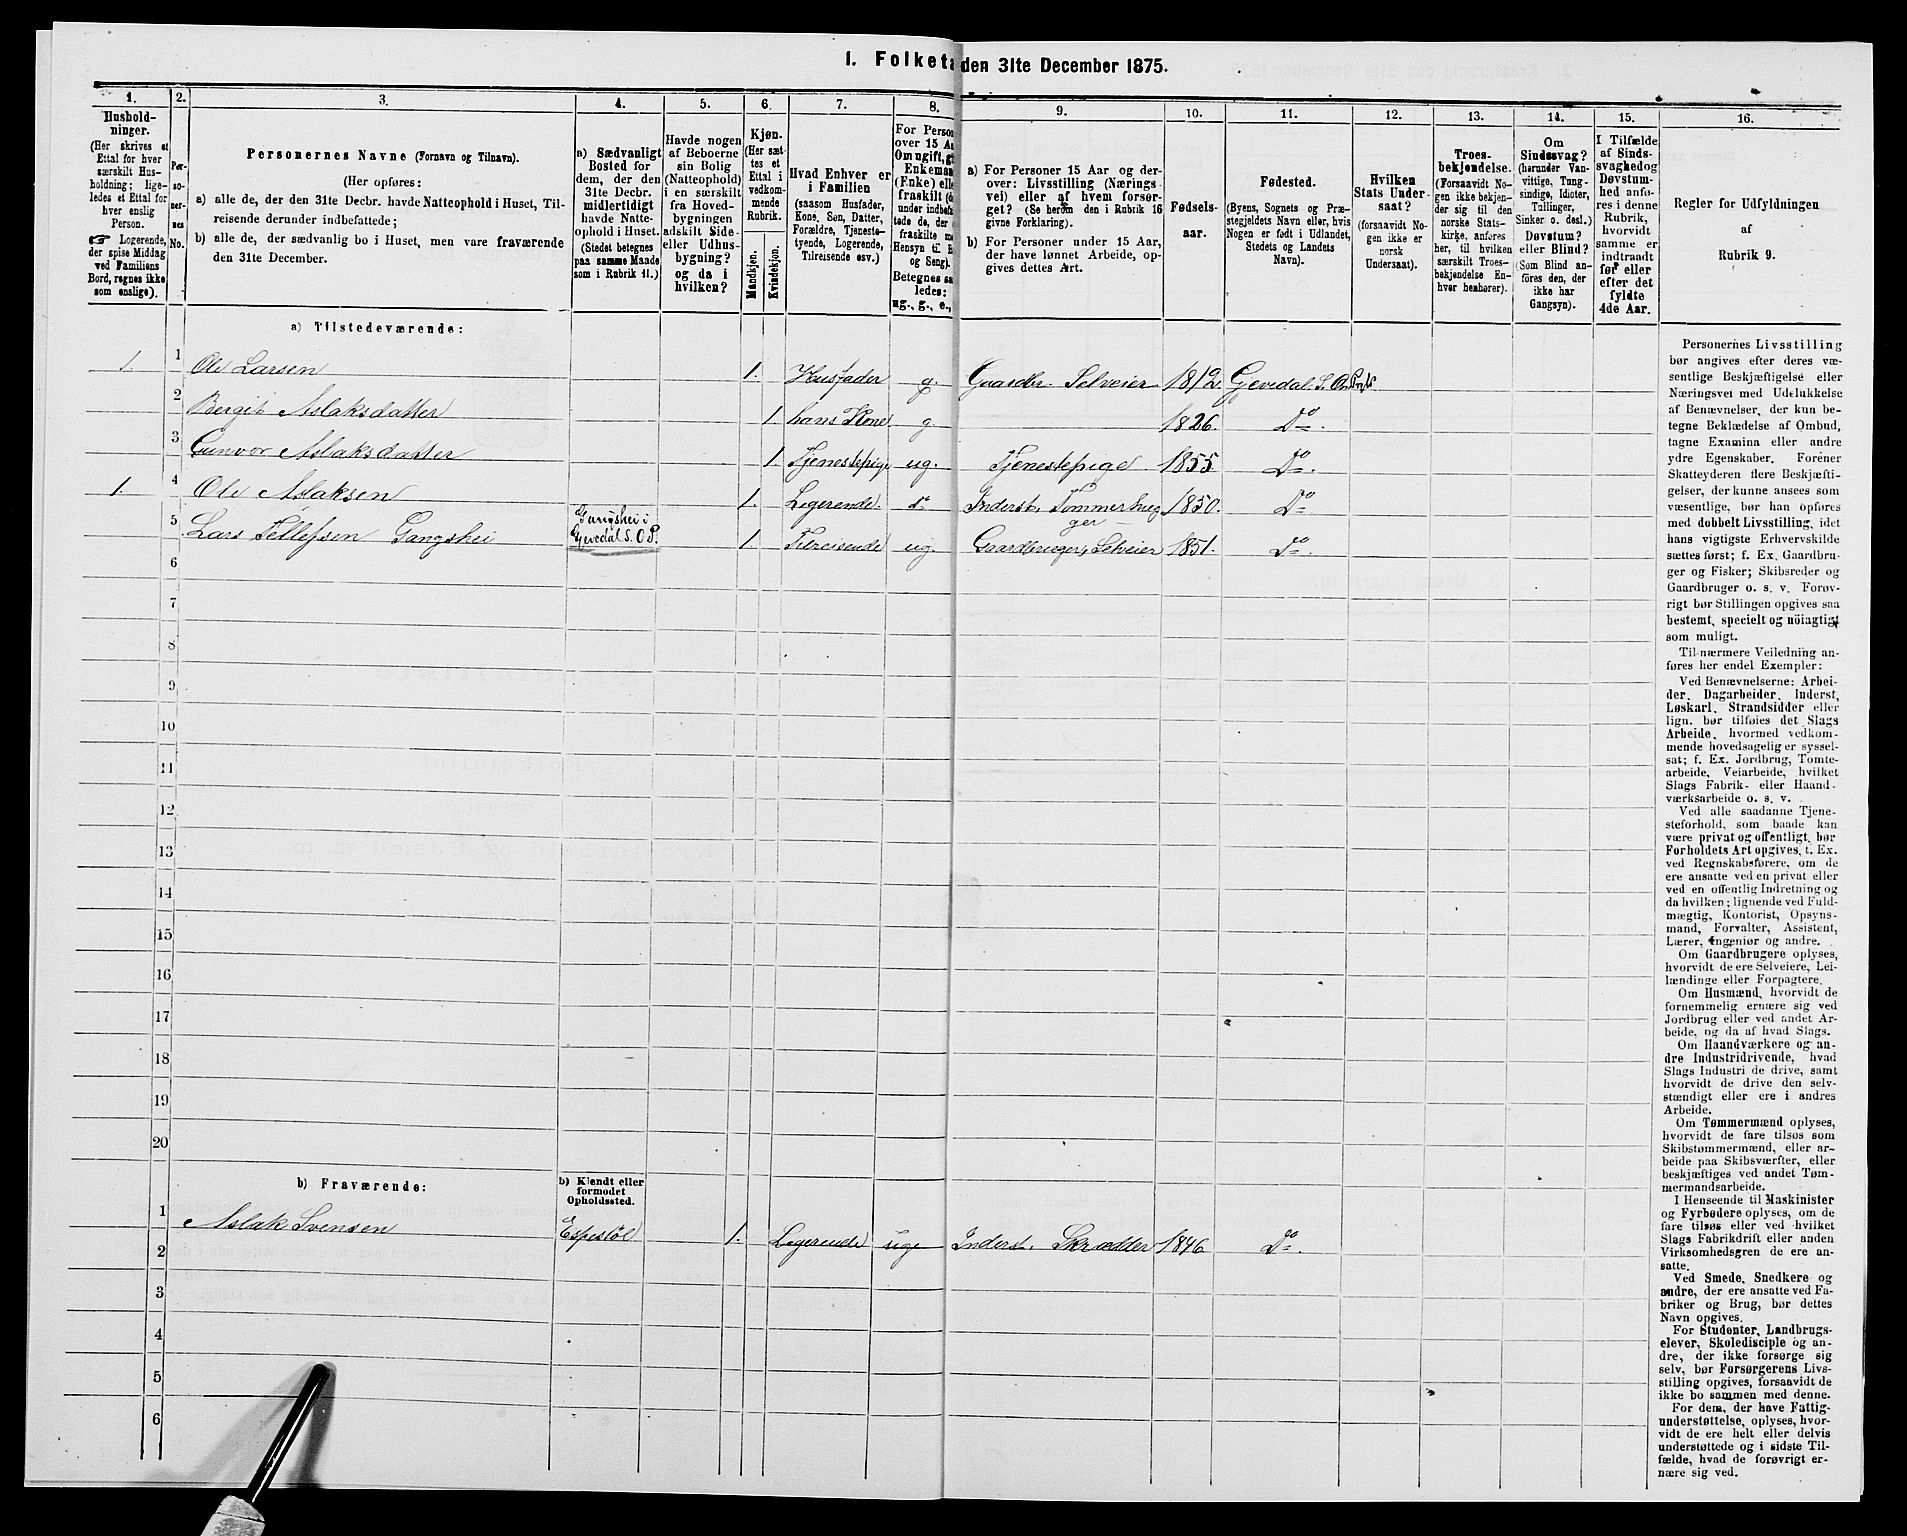 1. Folketa den 31te December 1875.
1. 2. 3. 4. 5. 6. 7. 8. 9. 10. 11. 12. 13. 14. 15. 16.
Hushold-
ninger.
(Her skrives et
Ettal for hver
særskilt Hus-
holdning; lige-
ledes et Ettal for
hver enslig
Person.
☞ Logerende,
der spise Middag
ved Familiens
Bord, regnes ikke
som enslige).
Per-
so-
ner-
nes
No.
Personernes Navne (Fornavn og Tilnavn).
(Her opføres:
a) alle de, der den 31te Decbr. havde Natteophold i Huset, Til-
reisende derunder indbefattede;
b) alle de, der sædvanlig bo i Huset, men vare fraværende
den 31te December.
a) Sædvanligt
Bosted for
dem, der den
31te Decbr.
midlertidigt
havde Natte-
ophold i Huset.
(Stedet betegnes
paa samme Maade
som i Rubrik 11.)
Havde nogen
af Beboerne
sin Bolig
(Natteophold)
i en særskilt
fra Hoved-
bygningen
adskilt Side-
eller Udhus-
bygning?
og da i
hvilken?
Kjøn.
(Her sæt-
tes et
Ettal i
vedkom-
mende
Rubrik.
Mandkjøn.
Kvindekjøn.
Hvad Enhver er
i Familien
(saasom Husfader,
Kone, Søn, Datter,
Forældre, Tjeneste-
tyende, Logerende,
Tilreisende osv.)
For Person
over 15 Aa
Om ugift, g
Enkeman
(Enke) elle
fraskilt (d
under indbefa
tede de, der e
fraskilte m
Hensyn til B
og Seng).
Betegnes saa
ledes:
ug., g., e.,
a) For Personer 15 Aar og der-
over: Livsstilling (Nærings
vei) eller af hvem forsør-
get? (Se herom den i Rubrik 16
givne Forklaring).
b) For Personer under 15 Aar,
der have lønnet Arbeide, op-
gives dettes Art.
Fødsels-
aar.
Fødested.
(Byens, Sognets og Præ-
stegjeldets Navn eller, hvis
Nogen er født i Udlandet,
Stedets og Landets
Navn).
Hvilken
Stats Under-
saat?
(forsaavidt No-
gen ikke er
norsk
Undersaat).
Troes-
bekjendelse.
(Forsaavidt No-
gen ikke bekjen-
der sig til den
norske Stats-
kirke, anføres
her, til hvilken
særskilt Troes-
bekjendelse En-
hver henhører).
Om
Sindssvag?
(herunder Van-
vittige, Tung-
sindige, Idioter,
Tullinger,
Sinker o. desl.)
Døvstum?
eller Blind?
(Som Blind an-
føres den, der
ikke har
Gangsyn).
I Tilfælde
af Sinds-
svaghed og
Døvstum-
hed anfø-
res i denne
Rubrik,
hvorvidt
samme er
indtraadt
før eller
efter det
fyldte
4de Aar.
Regler for Udfyldningen
af
Rubrik 9.
a) Tilstedeværende:
1. 1 Ole Larsen 1. Husfader g Gaardbr. Selveier 1812 Gjevedal S. Omli Prgld
2 Bergit Aslaksdatter 1. hans Kone g 1826. Do.
3 Gunvor Aslaksdatter 1. Tjenestepige ug. Tjenestepige 1855. Do.
1. 4 Ole Aslaksen 1. Logerende. do Inderst, Tømmerhug
ger 1850. Do
5 Lars Tellefsen Gangshei Gangshei i
Gjevedal S. O P. 1. Tilreisende ug. Gaardbruger, Selveier 1851. Do.
6
7
8
9
10
11
12
13
14
15
16
17
18
19
20
b) Fraværende:
b) Kjendt eller
formodet
Opholdssted.
1 Aslak Svensen Espestøl 1. Logerende ug Inderst, Skrædder 1846 Do.
2
3
4
5
6
Personernes Livsstilling
bør angives efter deres væ-
sentlige Beskjæftigelse eller
Næringsvei med Udelukkelse
af Benævnelser, der kun be-
tegne Beklædelse af Ombud,
tagne Examina eller andre
ydre Egenskaber. Forener
Skatteyderen flere Beskjæfti-
gelser, der kunne ansees som
væsentlige, bør han opføres
med dobbelt Livsstilling, idet
hans vigtigste Erhvervskilde
sættes først; f. Ex. Gaardbru-
ger og Fisker; Skibsreder og
Gaardbruger o. s. v. Forøv-
rigt bør Stillingen opgives saa
bestemt, specielt og nöiagtigt
som muligt.
Til nærmere Veiledning an-
føres her endel Exempler:
Ved Benævnelserne: Arbei-
der, Dagarbeider, Inderst,
Løskarl, Strandsidder eller
lign. bør tilføies det Slags
Arbeide, hvormed vedkom-
mende hovedsagelig er syssel-
sat; f. Ex. Jordbrug, Tomte-
arbeide, Veiarbeide, hvilket
Slags Fabrik- eller Haand-
værksarbeide o. s. v.
Ved alle saadanne Tjene-
steforhold, som baade kan
være privat og offentligt, bør
Forholdets Art opgives, f. Ex.
ved Regnskabsførere, om de
ere ansatte ved en privat eller
ved en offentlig Indretning og
da hvilken; lignende ved Fuld-
mægtig, Kontorist, Opsyns-
mand, Forvalter, Assistent,
Lærer, Ingeniør og andre.
Om Gaardbrugere oplyses,
hvorvidt de ere Selveiere, Lei-
lændinge eller Forpagtere.
Om Husmænd, hvorvidt de
fornemmelig ernære sig ved
Jordbrug eller ved andet Ar-
beide, og da af hvad Slags.
Om Haandværkere og an-
dre Industridrivende, hvad
Slags Industri de drive, samt
hvorvidt de drive den selv-
stændigt eller ere i andres
Arbeide.
Om Tømmermænd oplyses,
hvorvidt de fare tilsøs som
Skibstømmermænd, eller ar-
beide paa Skibsværfter, eller
beskjæftiges ved andet Tøm-
mermandsarbeide.
I Henseende til Maskinister
og Fyrbødere oplyses, om de
fare tilsøs eller ved hvilket
Slags Fabrikdrift eller anden
Virksomhedsgren de ere an-
satte.
Ved Smede, Snedkere og
andre, der ere ansatte ved Fa-
briker og Brug, bør dettes
Navn opgives.
For Studenter, Landbrugs-
elever, Skoledisciple og an-
dre, der ikke forsørge sig
selv, bør Forsørgerens Livs-
stilling opgives, forsaavidt de
ikke bo sammen med denne.
For dem, der have Fattig-
understøttelse, oplyses, hvor-
vidt de ere helt eller delvis
understøttede og i sidste Til-
fælde, hvad de forøvrigt er-
nære sig ved.